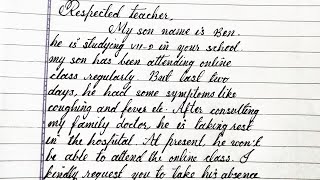 Respected teacher,
My son name is Ben.
he is studying VII-D in your school.
my son has been attending online
class regularly. But last two
days, he had some symptoms like
coughing and fever etc. After consulting
my family doctor, he is taking rest
in the hospital. At present, he won't
be able to attend the online class. I
kindly request you to take his absence